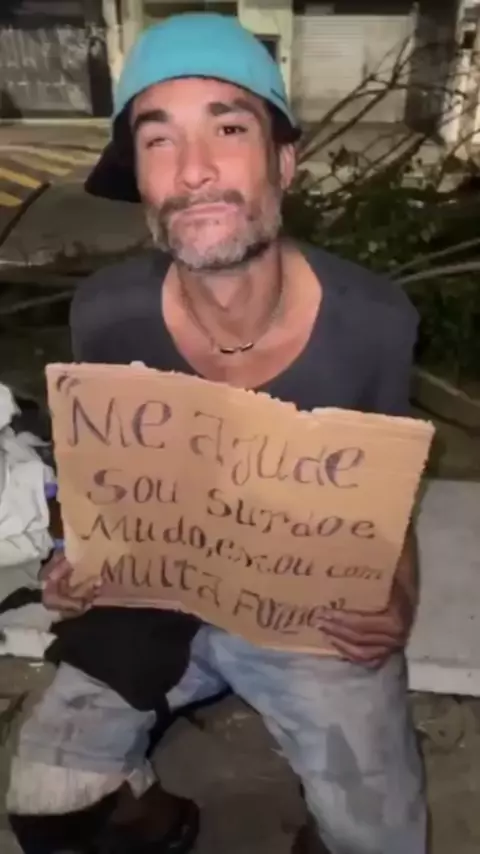 "Me AJude
Sou surdo e
Mudo, estou com
MUITA Fome"